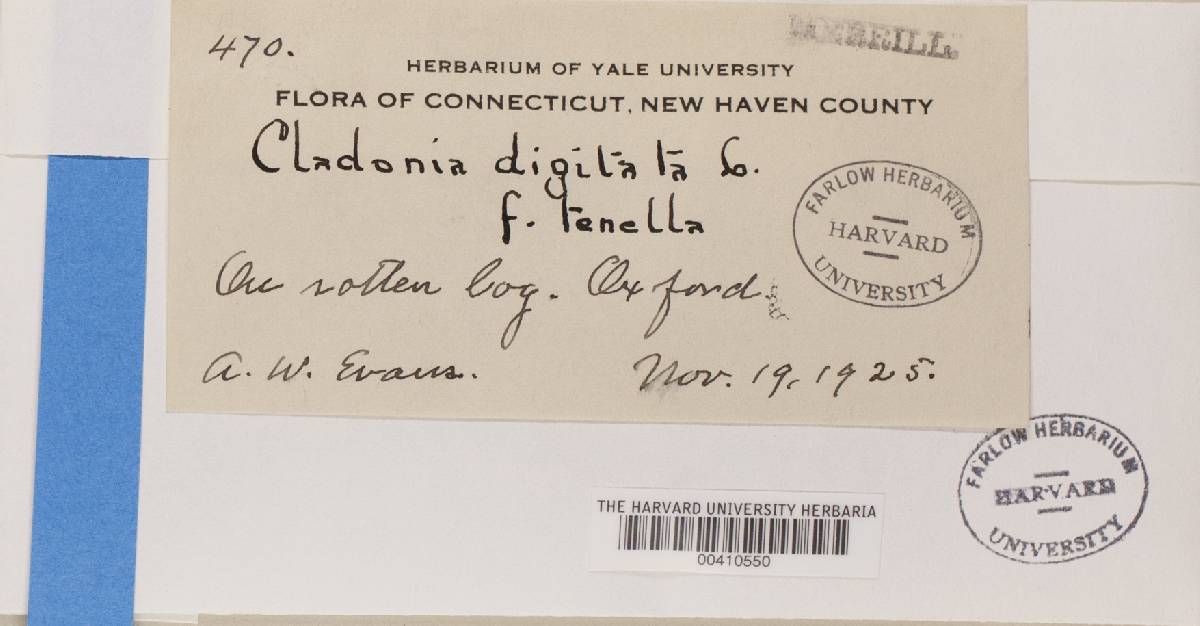 470.
HERBARIUM OF YALE UNIVERSITY
FLORA OF CONNECTICUT, NEW HAVEN COUNTY
Cladonia digitata
f. tenella
FARLOW HERBARIUM
HARVARD
UNIVERSITY
On rotten log. Oxford.
A. W. Evans. Nov. 19, 1925.
FARLOW HERBARIUM
HARVARD
UNIVERSITY
THE HARVARD UNIVERSITY HERBARIA
00410550